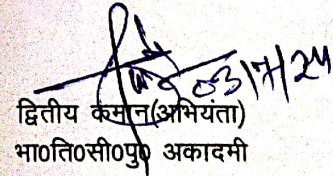 03/7/24
द्वितीय कमान(अभियंता)
भा०ति०सी०पु० अकादमी